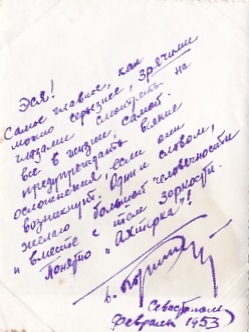 Эся!
Самое главное, как
можно серьезнее, зрячими
глазами смотреть на
все в жизни, самой
предупреждать всякие
осложнения, если они
возникнут. Одним словом,
желаю большой человечности
и вместе с тем зоркости.
Понято "Ахтирка"?!
Севастополь
февраль 1953